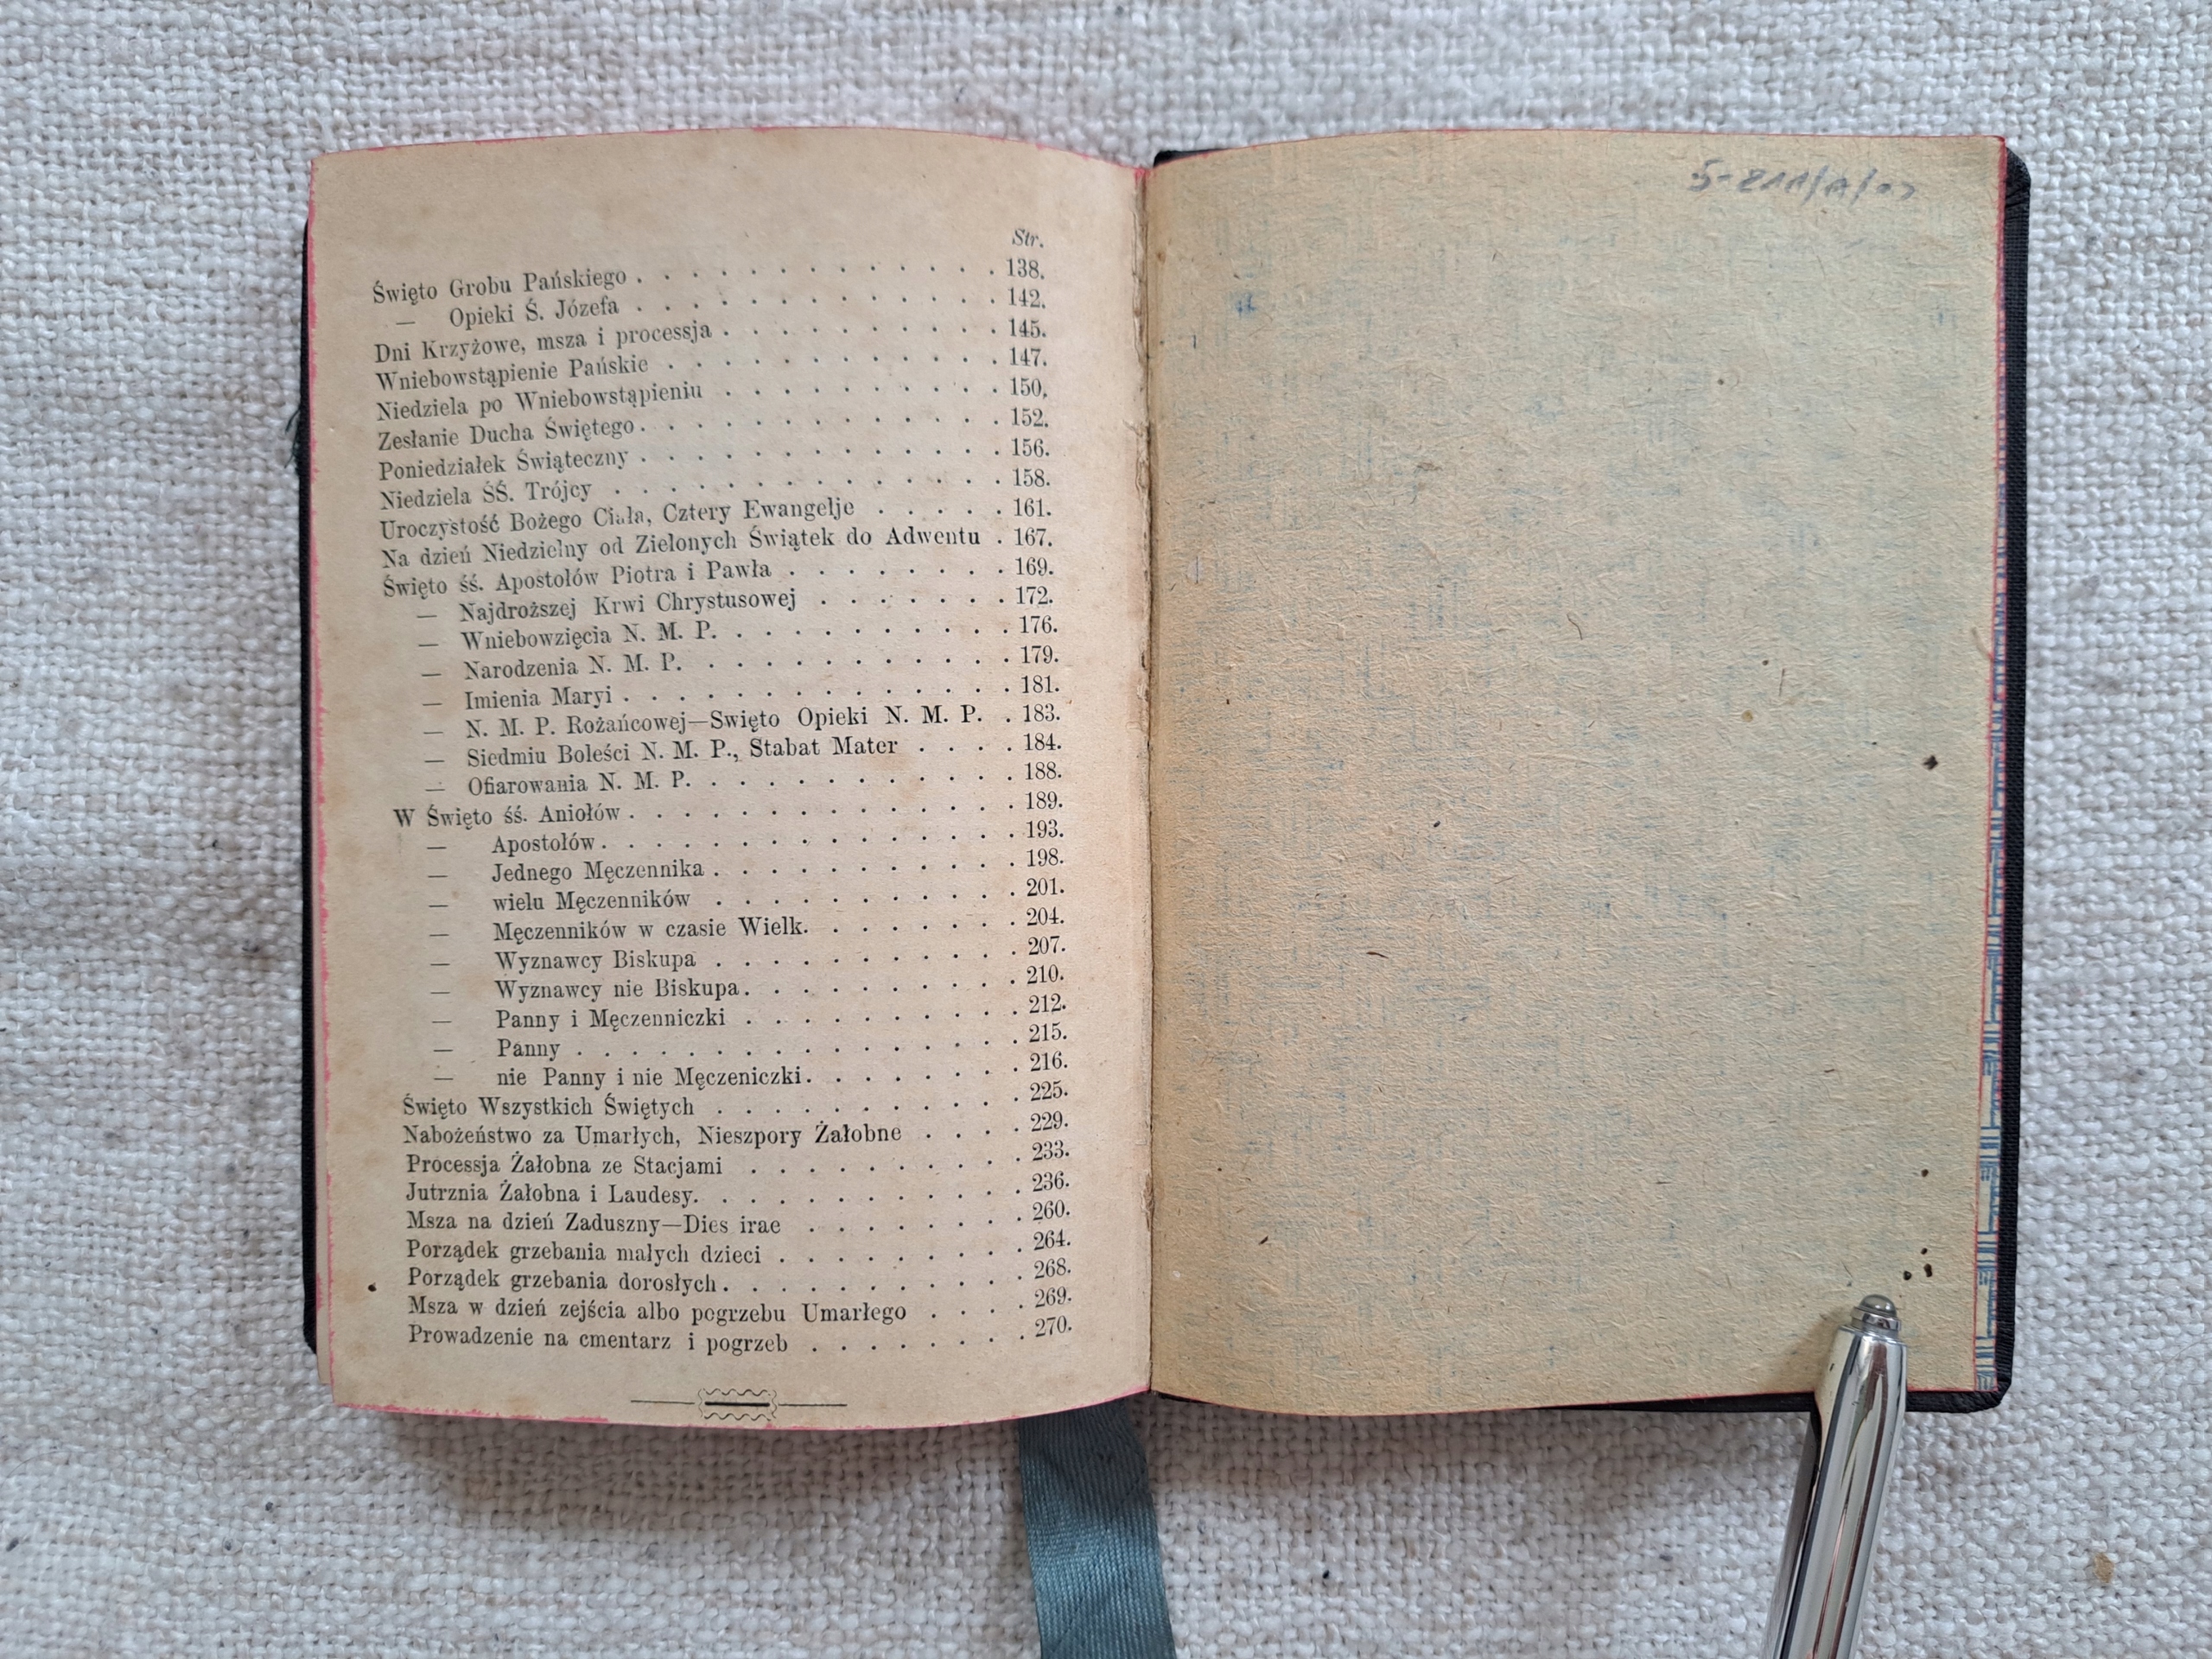 Str.
Święto Grobu Pańskiego . . . . . . . . . . . . . 138.
— Opieki Ś. Józefa . . . . . . . . . . . . . 142.
Dni Krzyżowe, msza i processja . . . . . . . . . . 145.
Wniebowstąpienie Pańskie . . . . . . . . . . . . 147.
Niedziela po Wniebowstąpieniu . . . . . . . . . . 150.
Zesłanie Ducha Świętego . . . . . . . . . . . . . 152.
Poniedziałek Świąteczny . . . . . . . . . . . . . 156.
Niedziela ŚŚ. Trójcy . . . . . . . . . . . . . . 158.
Uroczystość Bożego Ciała, Cztery Ewangelje . . . . . 161.
Na dzień Niedzielny od Zielonych Świątek do Adwentu . 167.
Święto śś. Apostołów Piotra i Pawła . . . . . . . . 169.
— Najdroższej Krwi Chrystusowej . . . . . . . 172.
— Wniebowzięcia N. M. P. . . . . . . . . . . 176.
— Narodzenia N. M. P. . . . . . . . . . . . 179.
— Imienia Maryi . . . . . . . . . . . . . . 181.
— N. M. P. Rożańcowej—Swięto Opieki N. M. P. . 183.
— Siedmiu Boleści N. M. P., Stabat Mater . . . . 184.
— Ofiarowania N. M. P. . . . . . . . . . . . 188.
W Święto śś. Aniołów . . . . . . . . . . . . . . 189.
— Apostołów . . . . . . . . . . . . . . . 193.
— Jednego Męczennika . . . . . . . . . . . 198.
— wielu Męczenników . . . . . . . . . . . 201.
— Męczenników w czasie Wielk. . . . . . . . 204.
— Wyznawcy Biskupa . . . . . . . . . . . 207.
— Wyznawcy nie Biskupa . . . . . . . . . . 210.
— Panny i Męczenniczki . . . . . . . . . . 212.
— Panny . . . . . . . . . . . . . . . . 215.
— nie Panny i nie Męczeniczki . . . . . . . . 216.
Święto Wszystkich Świętych . . . . . . . . . . . 225.
Nabożeństwo za Umarłych, Nieszpory Żałobne . . . . 229.
Processja Żałobna ze Stacjami . . . . . . . . . . 233.
Jutrznia Żałobna i Laudesy. . . . . . . . . . . . 236.
Msza na dzień Zaduszny—Dies irae . . . . . . . . 260.
Porządek grzebania małych dzieci . . . . . . . . . 264.
Porządek grzebania dorosłych . . . . . . . . . . . 268.
Msza w dzień zejścia albo pogrzebu Umarłego . . . . 269.
Prowadzenie na cmentarz i pogrzeb . . . . . . . . 270.